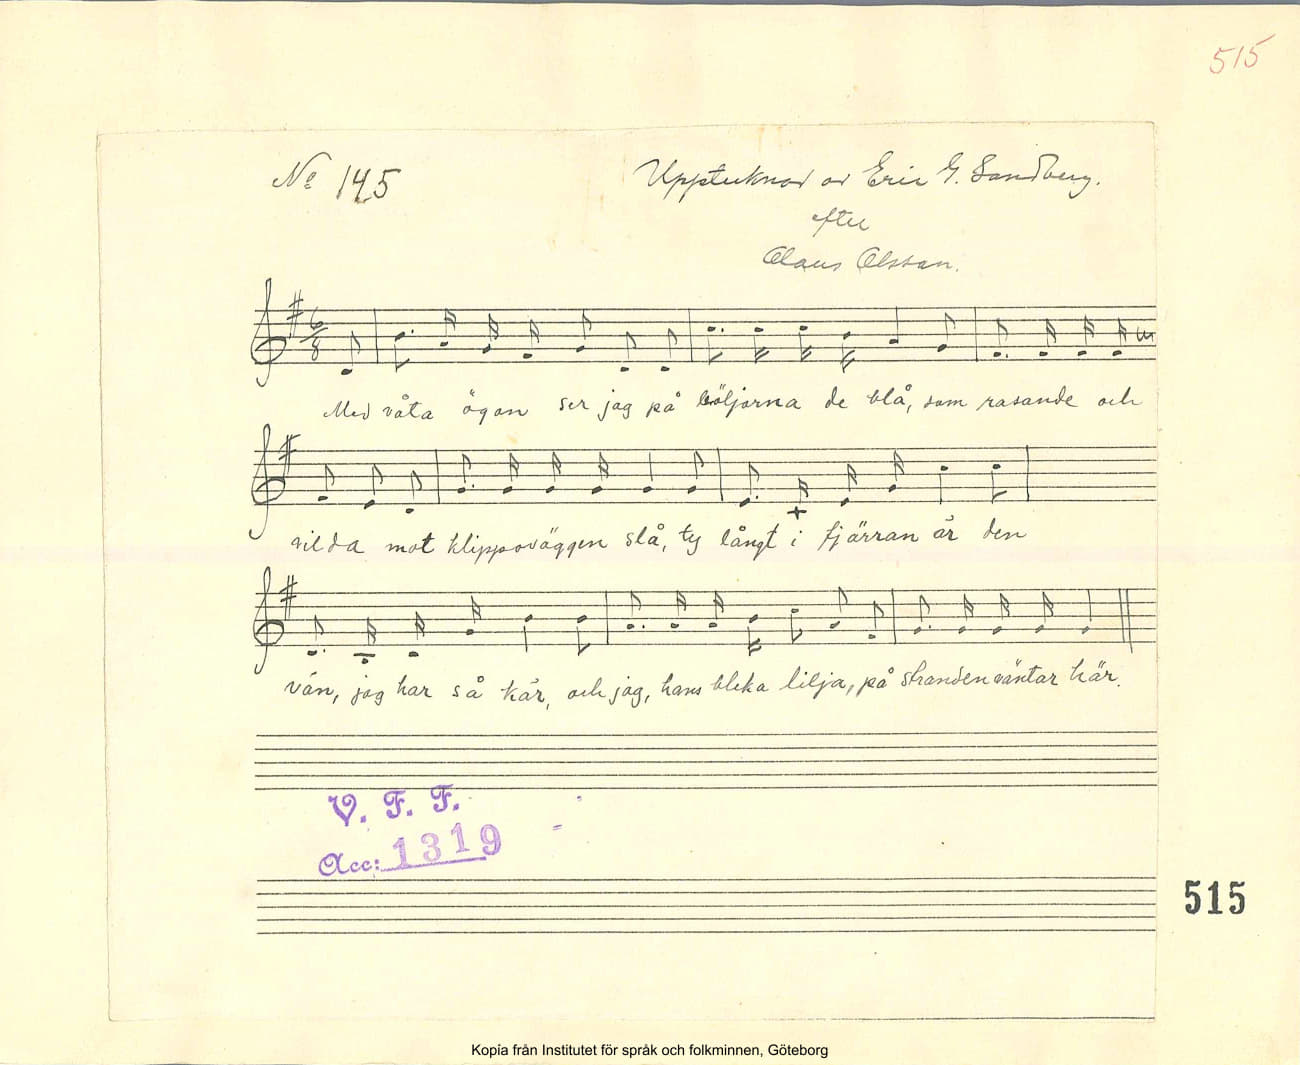 515
No 145
Upptecknad av Eric G. Sandberg.
efter
Olaus Olsson.
6/8
Med våta ögon ser jag på böljorna de blå, som rasande och
vilda mot klippoväggen slå, ty långt i fjärran är den
vän, jag har så kär, och jag, hans bleka lilja, på stranden väntar här.
V. F. F.
Acc: 1319
515
Kopia från Institutet för språk och folkminnen, Göteborg